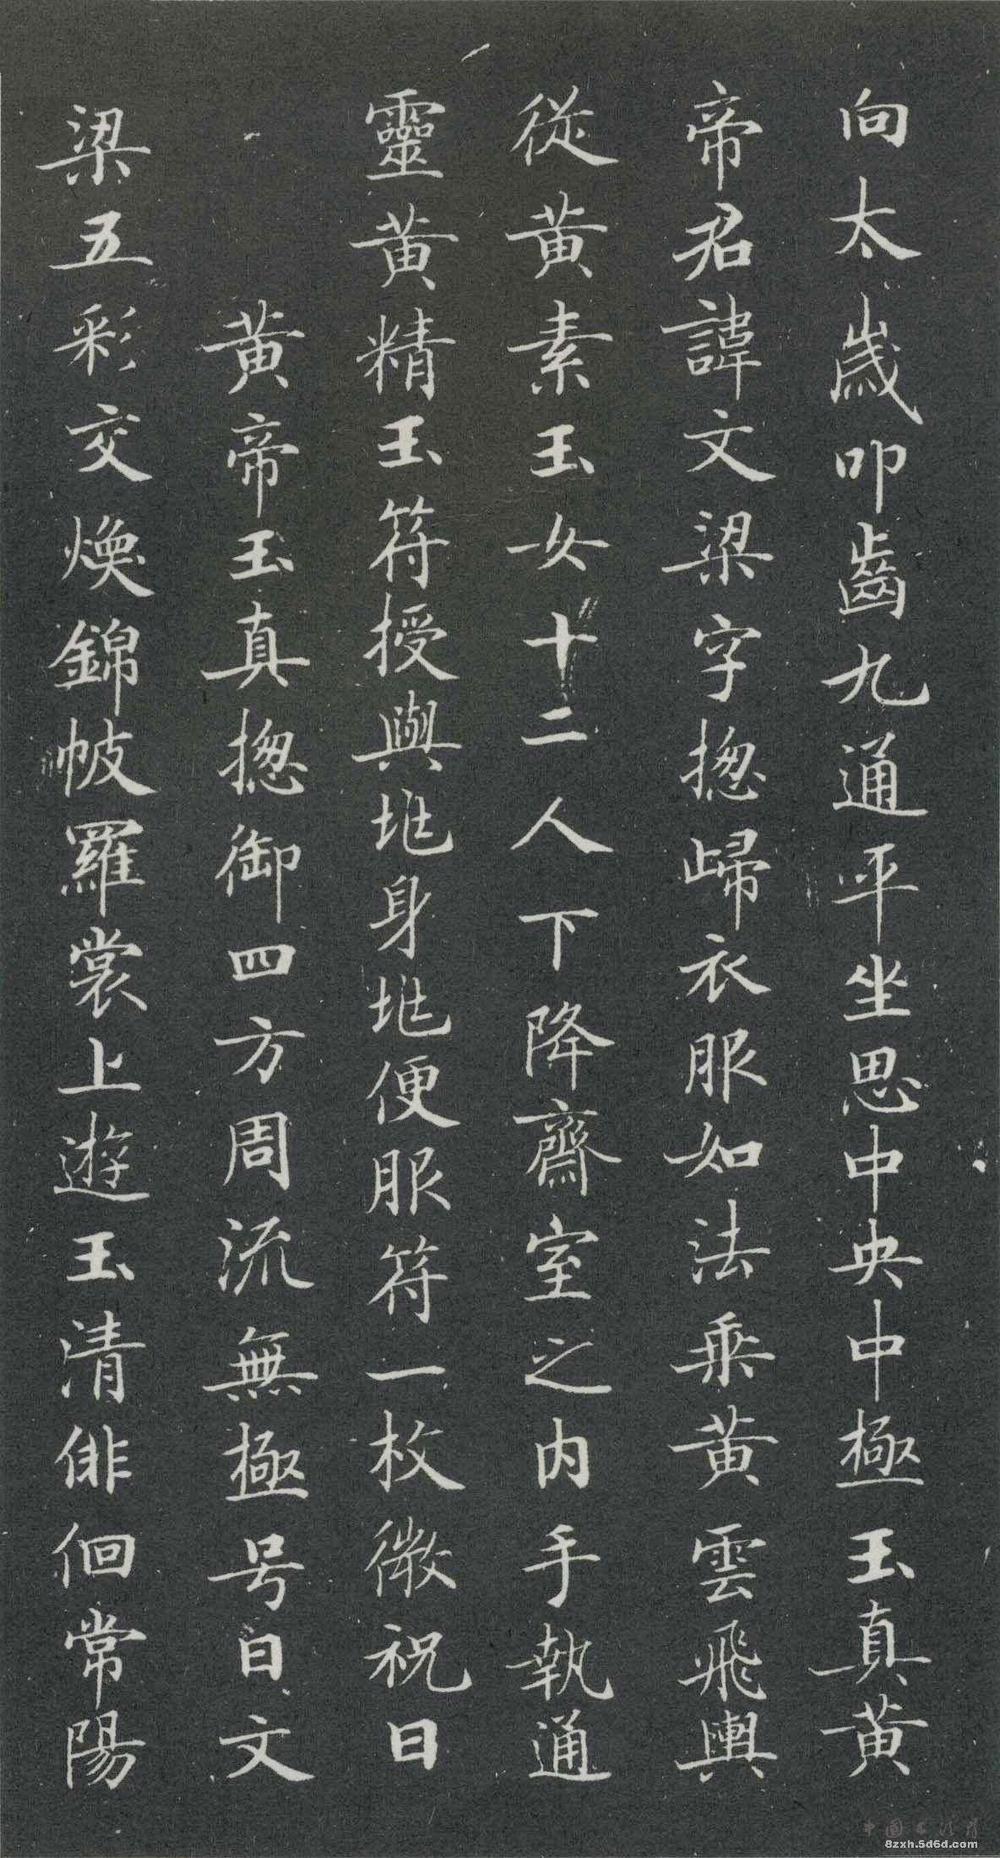 向太歲叩齒九通平坐思中央中極玉真黃
帝君諱文梁字揔歸衣服如法乘黃雲飛輿
從黃素玉女十二人下降齋室之內手執通
靈黃精玉符授與兆身兆便服符一枚微祝曰
黃帝玉真揔御四方周流無極号曰文
梁五彩交煥錦帔羅裳上遊玉清俳佪常陽
8zxh.5d6d.com